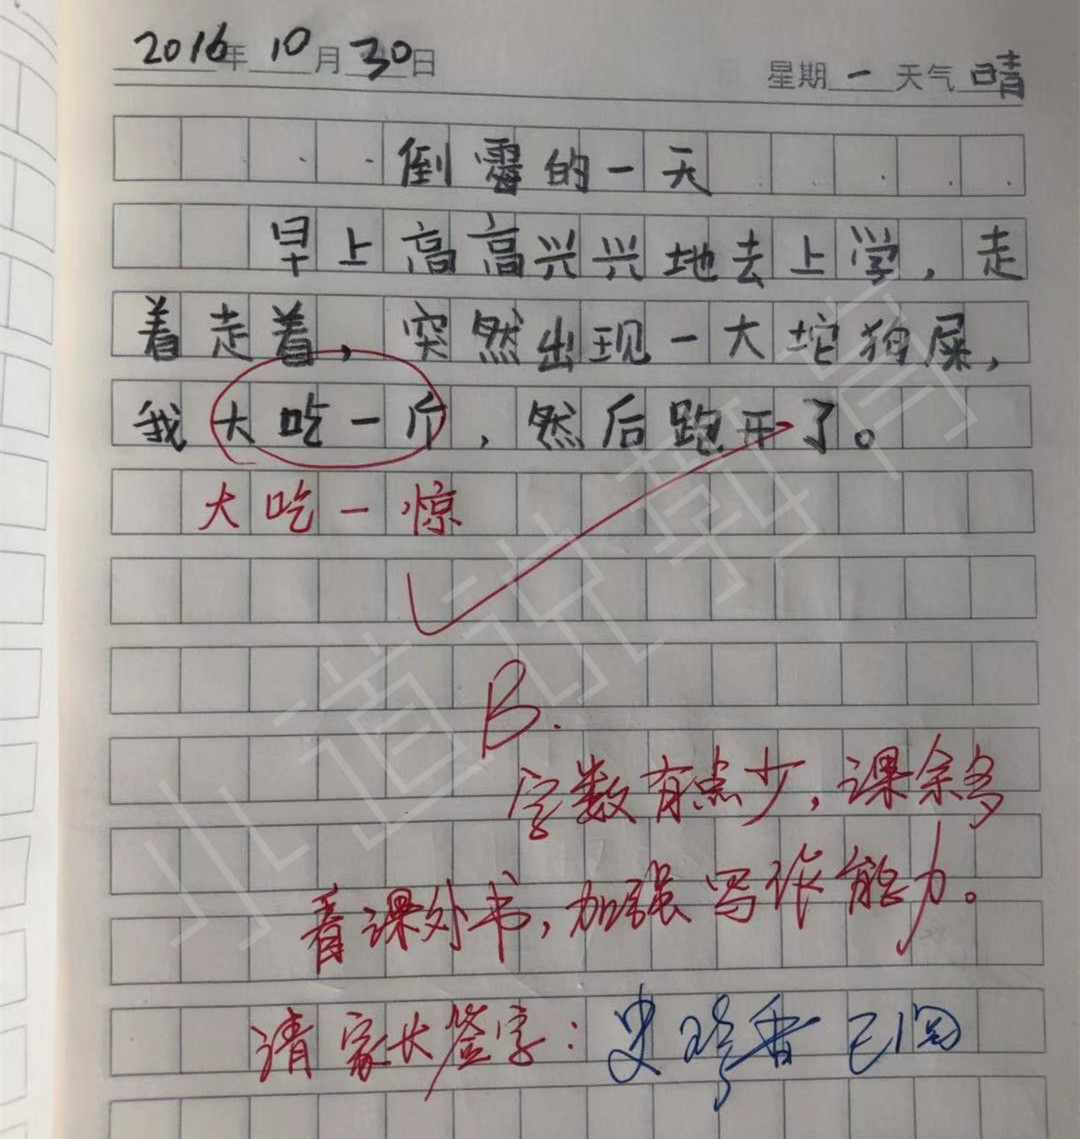 2016年10月30日 星期一 天气晴
倒霉的一天
早上高高兴兴地去上学，走
着走着，突然出现一大坨狗屎，
我大吃一斤，然后跑开了。
大吃一惊
B.
字数有点少，课余多
看课外书，加强写作能力。
请家长签字：史珍香 已阅
小道说教育